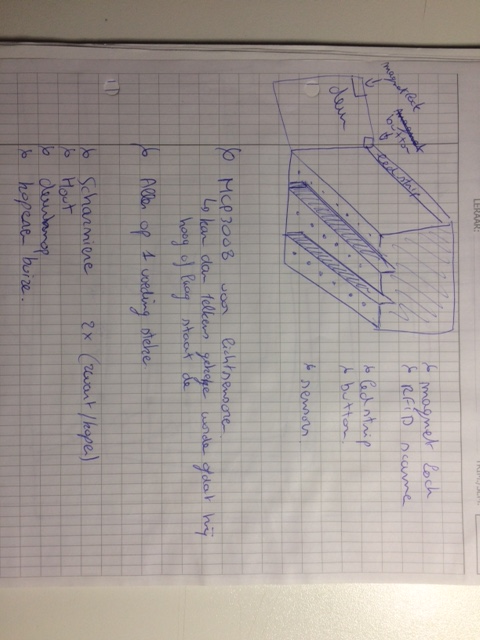 magnetisch
button
deur
ledstrip
↳ magnet lock
↳ RFID scanner
↳ ledstrip
↳ button
↳ sensors
↳ MCP3008 voor lichtsensoren
↳ kan dan telkens gekeken worden ofdat hij
hoog of laag staat de
↳ Alles op 1 voeding steken
↳ Scharnieren 2x (zwart/koper)
↳ Hout
↳ deurknop
↳ koperen buizen.